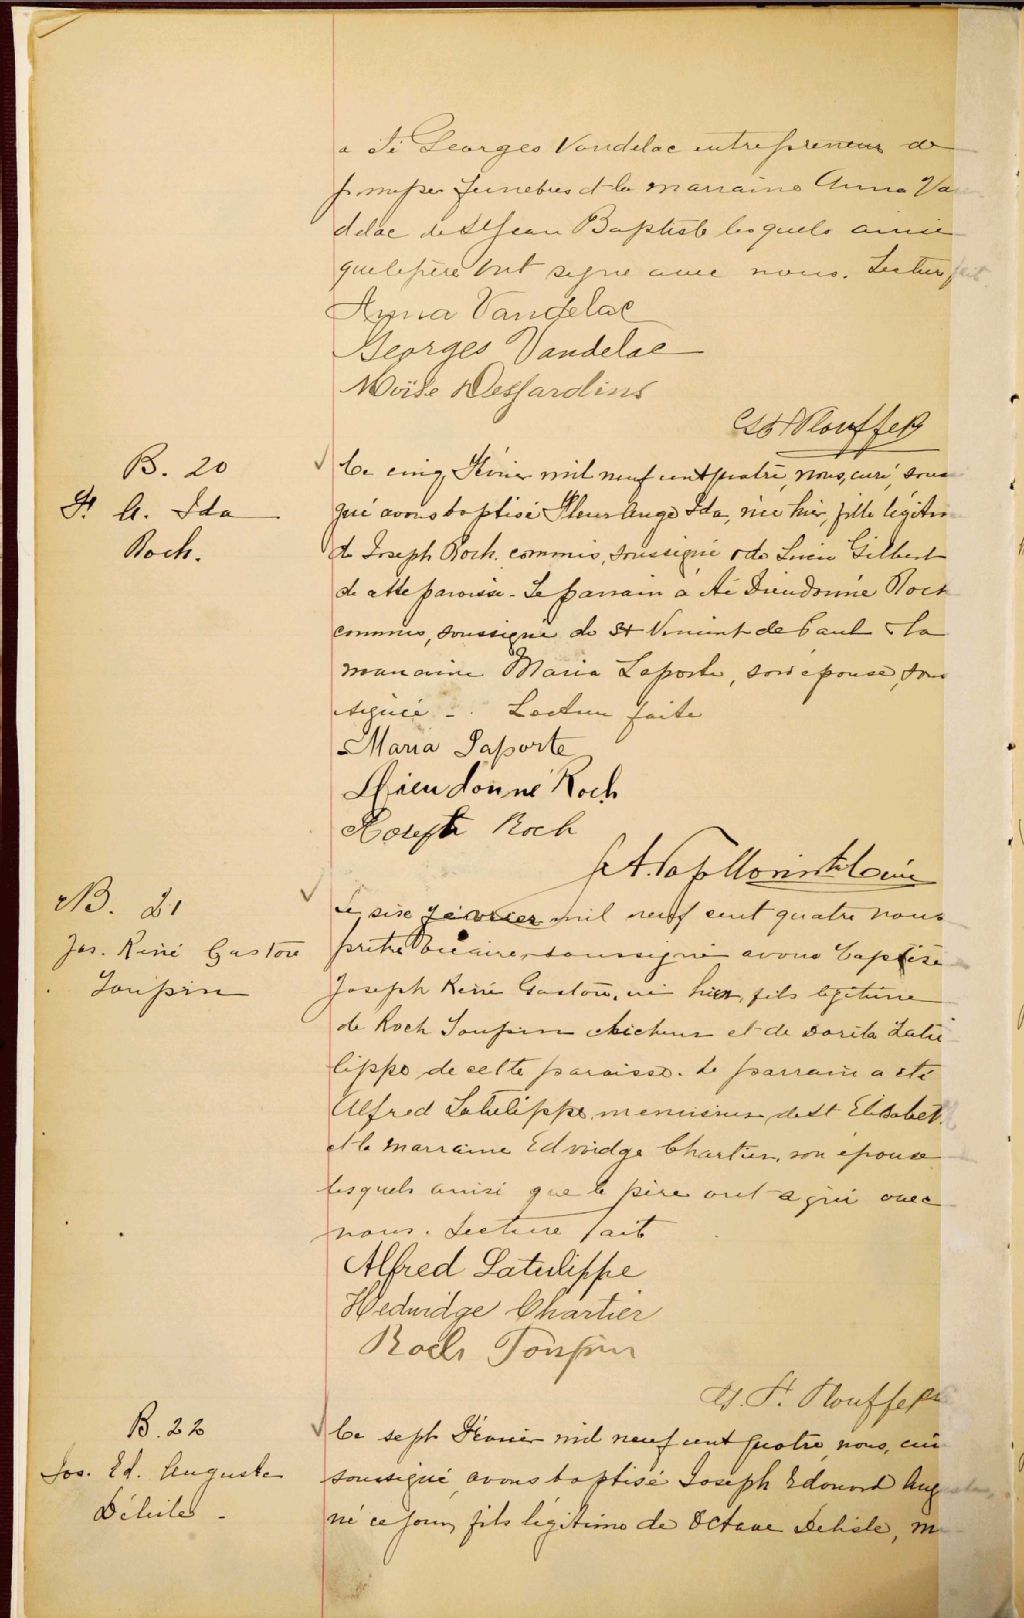 a été Georges Vandelac entrepreneur de
pompes funebres et la marraine Anna Van
delac de St Jean Baptiste lesquels ainsi
que le père ont signe avec nous. Lecture fait
Anna Vandelac
Georges Vandelac
Moïse Desjardins
Plouffe
B. 20
F. A. Ida
Roch.
Ce cinq Février mil neuf cent quatre, nous, curé, sous
gné avons baptisé Fleur Ange Ida, née hier, fille légitim
de Joseph Roch, commis, soussigné & de Gilbert
de cette paroisse. Le parrain à été Dieudonné Roch
commis, soussigné de St Vincent de Paul & la
marraine Maria Laporte, son épouse, sous
signée -. Lecture faite
Maria Laporte
Dieudonné Roch
Joseph Roch
curé
B. 21
Jos. René Gaston
Toupin
Le six février mil neuf cent quatre nous
prêtre vicaire, soussigné avons baptisé
Joseph René Gaston, né hier, fils légitime
de Roch Toupin et de Dorila Latu
lippe de cette paroisse. Le parrain a été
Alfred Latulippe, menuisier, de St Elisabet
et la marraine Edwidge Chartier, son épouse
lesquels ainsi que le père ont signé avec
nous. Lecture fait
Alfred Latulippe
Hedwidge Chartier
Roch Toupin
Plouffe
B. 22
Jos. Ed. Auguste
Délisle -
Ce sept Février mil neuf cent quatre, nous, curé
soussigné, avons baptisé Joseph Edouard Auguste,
né ce jour, fils légitime de Octave Delisle, m